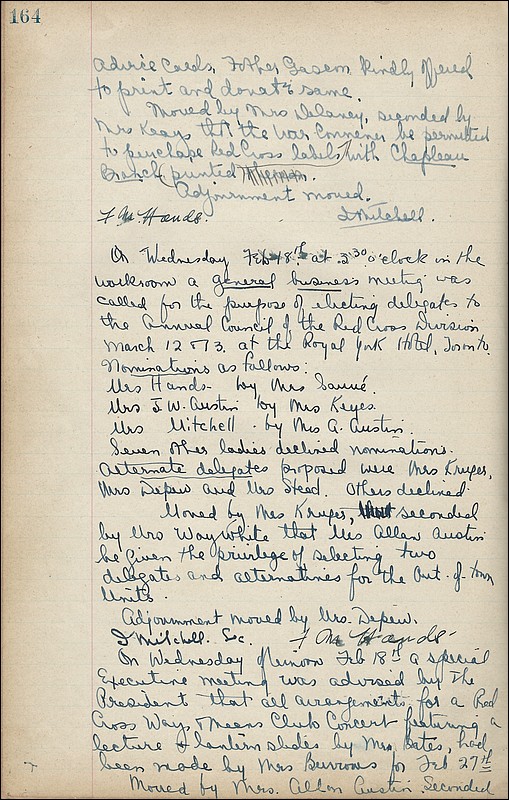 164
advice cards. Father Gascon kindly offered
to print and donate same.
Moved by Mrs Delaney, seconded by
Mrs Keays that the War Convener be permitted
to purchase Red Cross labels, with Chapleau
Branch printed thereon.
Adjournment moved.
F M Hands. I Mitchell.
On Wednesday Feb 18th at 3.30 o'clock in the
workroom a general business meeting was
called for the purpose of electing delegates to
the Annual Council of the Red Cross Division
March 12 & 13. at the Royal York Hotel, Toronto.
Nominations as follows:
Mrs Hands - by Mrs Sauvé.
Mrs J. W. Austin by Mrs Keyes.
Mrs Mitchell - by Mrs A. Austin.
Seven other ladies declined nominations.
Alternate delegates proposed were Mrs Kruger,
Mrs Depew and Mrs Stead. Others declined.
Moved by Mrs Kruger, seconded
by Mrs Way White that Mrs Allan Austin
be given the privilege of selecting two
delegates and alternatives for the Out-of-town
Units.
Adjournment moved by Mrs. Depew.
I Mitchell. Sec. F M Hands.
On Wednesday afternoon Feb 18th a special
Executive meeting was advised by the
President that all arrangements for a Red
Cross Ways & Means Club Concert featuring a
lecture & lantern slides by Mrs. Bates, had
been made by Mrs Burrows for Feb 27th
Moved by Mrs. Allan Austin, Seconded